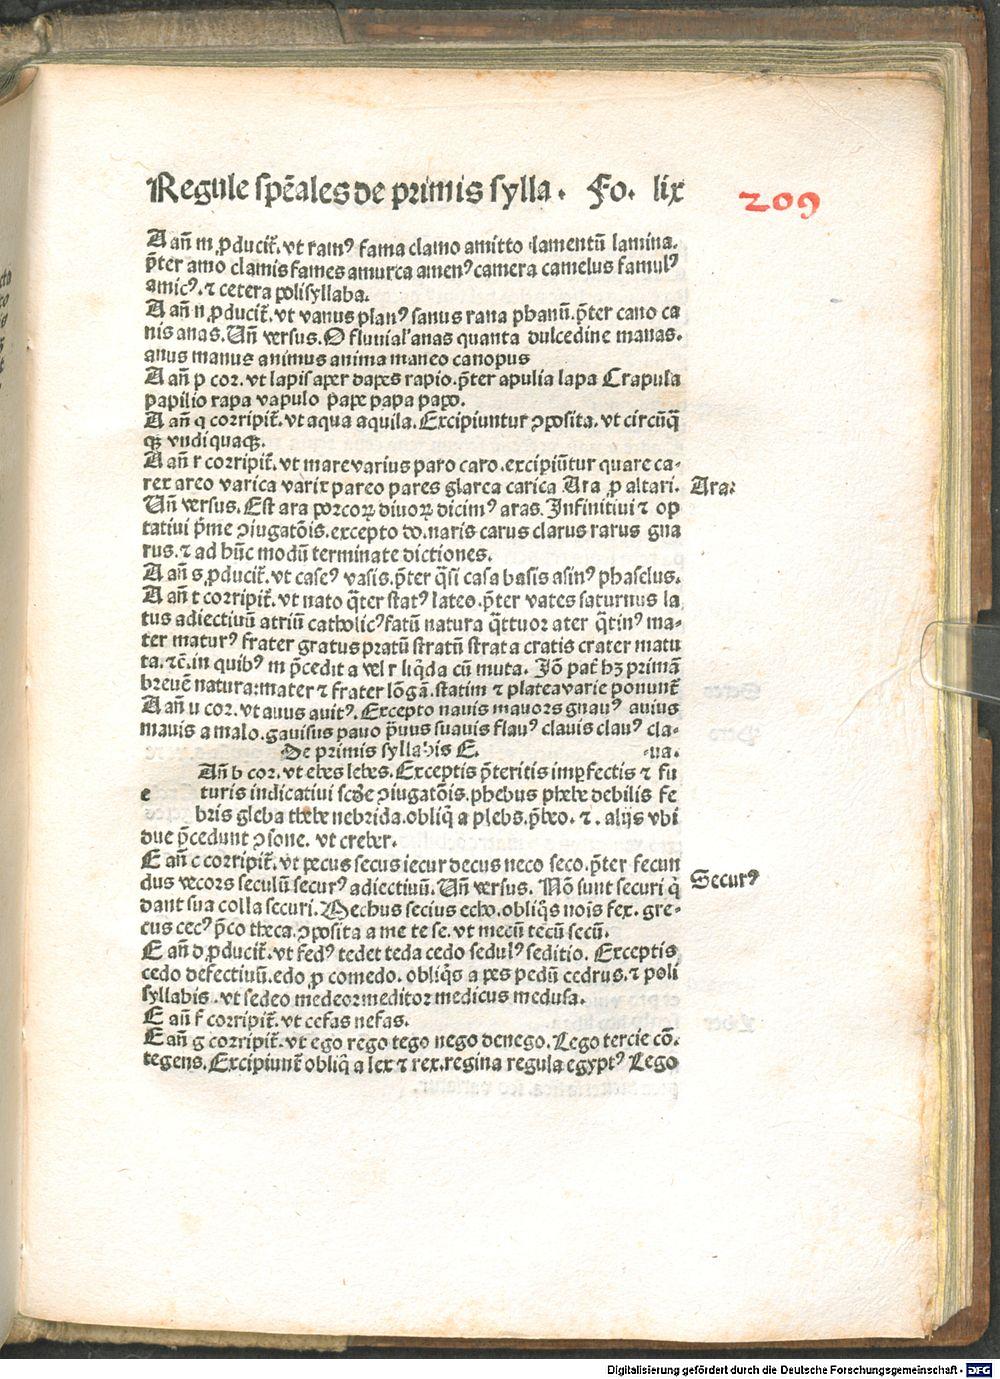 Regule spēales de primis sylla. Fo. lix
209
A añ m ꝓducit̄. vt ramꝰ fama clamo amitto lamentū lamina.
p̄ter amo clamis fames amurca amenꝰ camera camelus famulꝰ
amicꝰ. ⁊ cetera polisyllaba.
A añ n ꝓducit̄. vt vanus planꝰ sanus rana phanū. p̄ter cano ca
nis anas. Uñ versus. O fluuial' anas quanta dulcedine manas.
anus manus animus anima maneo canopus
A añ p cor. vt lapis aper dapes rapio. p̄ter apulia lapa Crapula
papilio rapa vapulo pape papa papo.
A añ q corripit̄. vt aqua aquila. Excipiuntur ↄposita. vt circūq̄
qꝫ vndiquaqꝫ.
A añ r corripit̄. vt mare varius paro caro. excipiūtur quare ca-
rex areo varica varix pareo pares glarea carica Ara ꝓ altari.
Ara:
Uñ versus. Est ara porcoꝝ diuoꝝ dicimꝰ aras. Infinitiui ⁊ op
tatiui p̄me ↄiugatōis. excepto do. naris carus clarus rarus gna
rus. ⁊ ad hūc modū terminate dictiones.
A añ s ꝓducit̄. vt caseꝰ vasis. p̄ter q̄si casa basis asinꝰ phaselus.
A añ t corripit̄. vt nato q̄ter statꝰ lateo. p̄ter vates saturnus la
tus adiectiuū atriū catholicꝰ fatū natura q̄ttuor ater q̄tinꝰ ma-
ter maturꝰ frater gratus pratū stratū strata cratis crater matu
ta. ⁊c̄. in quibꝰ m p̄cedit a vel r liq̄da cū muta. Jō pat̄ hꝫ primā
breuē natura: mater ⁊ frater lōgā. statim ⁊ platea varie ponunt̄
A añ u cor. vt auus auitꝰ. Excepto nauis mauors gnauꝰ auius
mauis a malo. gauisus pauo p̄uus suauis flauꝰ clauis clauꝰ cla-
De primis syllabis E. -ua.
Añ b cor. vt ebes lebes. Exceptis p̄teritis imꝑfectis ⁊ fu
e turis indicatiui scd̄e ↄiugatōis. phebus phebe debilis fe
bris gleba thebe nebrida. obliq̄ a plebs. p̄beo. ⁊. alijs vbi
due p̄cedunt ↄsone. vt creber.
E añ c corripit̄. vt pecus secus iecur decus neco seco. p̄ter fecun
dus vecors seculū securꝰ adiectiuū. Uñ versus. Nō sunt securi q̄
Securꝰ
dant sua colla securi. Mechus secius echo. obliq̄s nois fex. gre-
cus cecꝰ p̄co theca. ↄposita a me te se. vt mecū tecū secū.
E añ d ꝓducit̄. vt fedꝰ tedet teda cedo sedulꝰ seditio. Exceptis
cedo defectiuū. edo ꝓ comedo. obliq̄s a pes pedū cedrus. ⁊ poli
syllabis. vt sedeo medeor meditor medicus medusa.
E añ f corripit̄. vt cefas nefas.
E añ g corripit̄. vt ego rego tego nego denego. Lego tercie cō.
tegens. Excipiunt̄ obliq̄ a lex ⁊ rex. regina regula egyptꝰ Lego
Digitalisierung gefördert durch die Deutsche Forschungsgemeinschaft - DFG